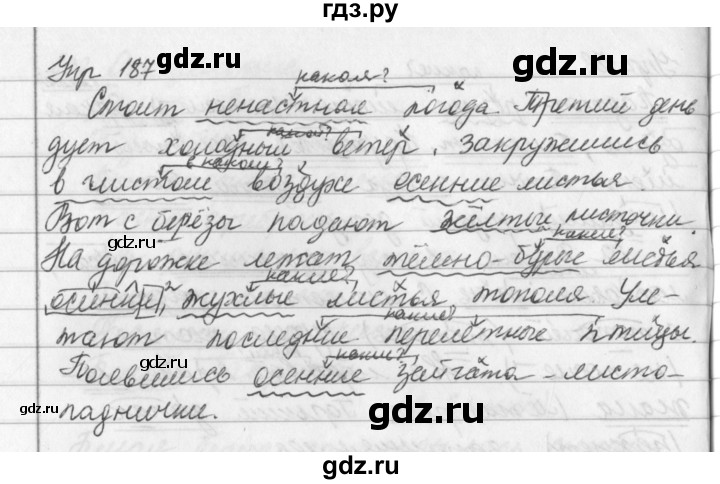 гдз.ру
Упр 187
какая?
Стоит ненастная погода. Третий день
какой?
дует холодный ветер. Закружились
в каком?
в чистом воздухе осенние листья
Вот с берёзы падают жёлтые листочки.
какие?
На дорожке лежат тёмно-бурые листья
какие?
осины, жухлые листья тополя. Уле-
какие?
тают последние перелётные птицы.
какие?
Появились осенние зайчата-листо-
паднички.
gdz.ru
gdz.ru
gdz.ru
gdz.ru
gdz.ru
gdz.ru
gdz.ru
gdz.ru
gdz.ru
gdz.ru
gdz.ru